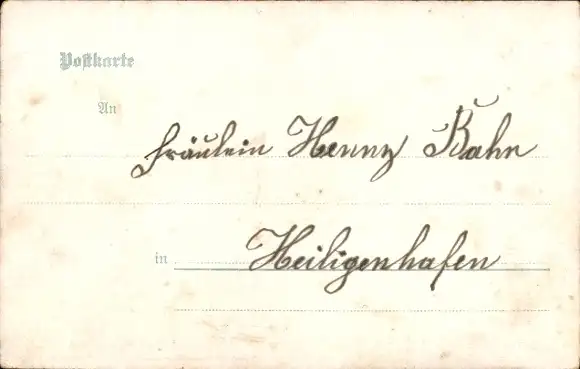 Postkarte
An
Fräulein Henny Kahn
in Heiligenhafen